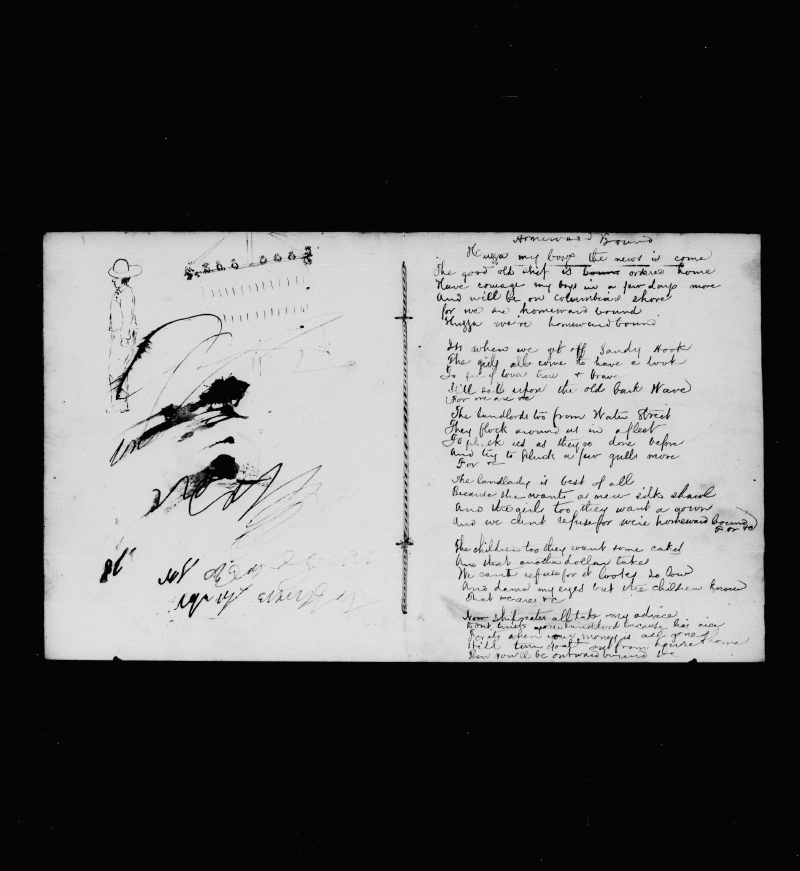 Homeward Bound
Huzza my boys the news is come
The good old ship is bound ordered home
Have courage my boys in a few days more
And will be on Columbias shore
for we are homeward bound
Huzza we're homeward bound
Its when we get off Sandy Hook
The girls all come to have a look
To lovers true & brave
Still sails upon the old bark Wave
For we are &c
The landlords too from Water Street
They flock around us in a fleet
To pluck us as they done before
And try to pluck a few gulls more
For &c
The landlady is best of all
Because she wants a new silk shawl
And the girls too they want a gown
And we cant refuse for we're homeward bound
For &c
The children too they want some cakes
And that another dollar takes
We cant refuse for it looks so low
And damn my eyes but the children know
That we are &c
Now shipmates all take my advice
Dont trust your landlord because his nice
For its when your money is all gone
turn out from house & home
Then you'll be outward bound &c